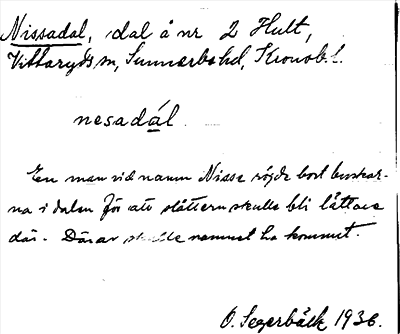 Nissadal, dal å nr 2 Hult,
Vittaryds sn, Sunnerbo hd, Kronob. l.
nesadál
En man vid namn Nisse röjde bort buskar-
na i dalen för att slåttern skulle bli lättare
där. Därav skulle namnet ha kommit.
O. Segerbäck 1936.